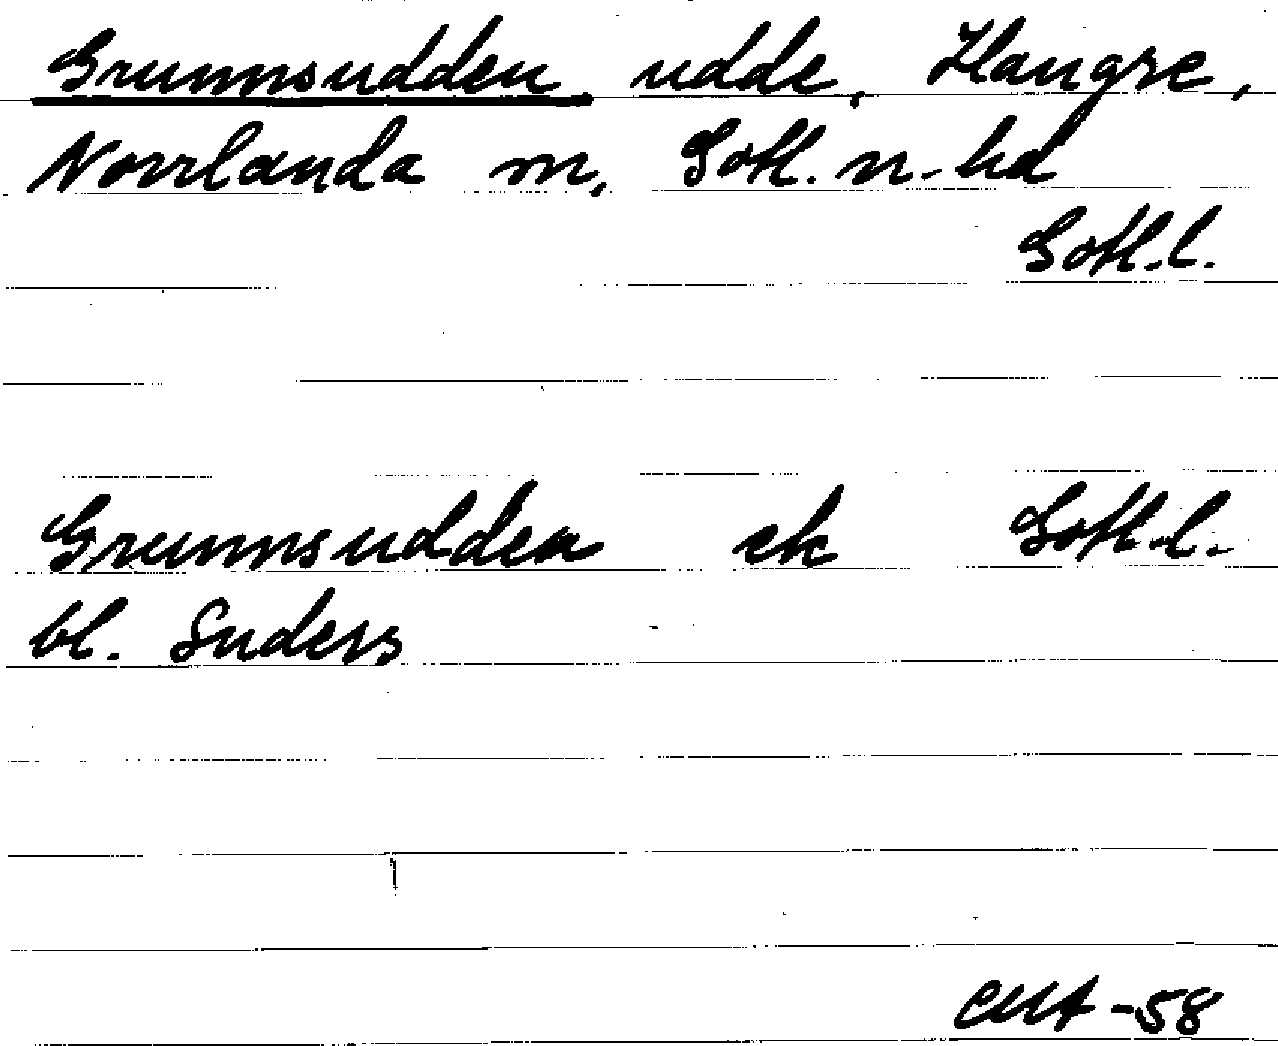 Grunnsudden, udde, Hangre,
Norrlanda sn, Gotl. n. hd
Gotl. l.
Grunnsudden ek Gotl. l.
bl. Suders
CMA -58